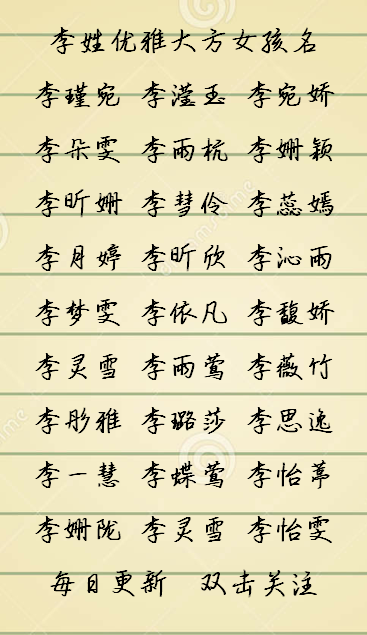 李姓优雅大方女孩名
李瑾宛 李滢玉 李宛娇
李朵雯 李雨杭 李姗颖
李昕姗 李彗伶 李蕊嫣
李月婷 李昕欣 李沁雨
李梦雯 李依凡 李馥娇
李灵雪 李雨莺 李薇竹
李彤雅 李璐莎 李思逸
李一慧 李蝶莺 李怡葶
李姗陇 李灵雪 李怡雯
每日更新 双击关注